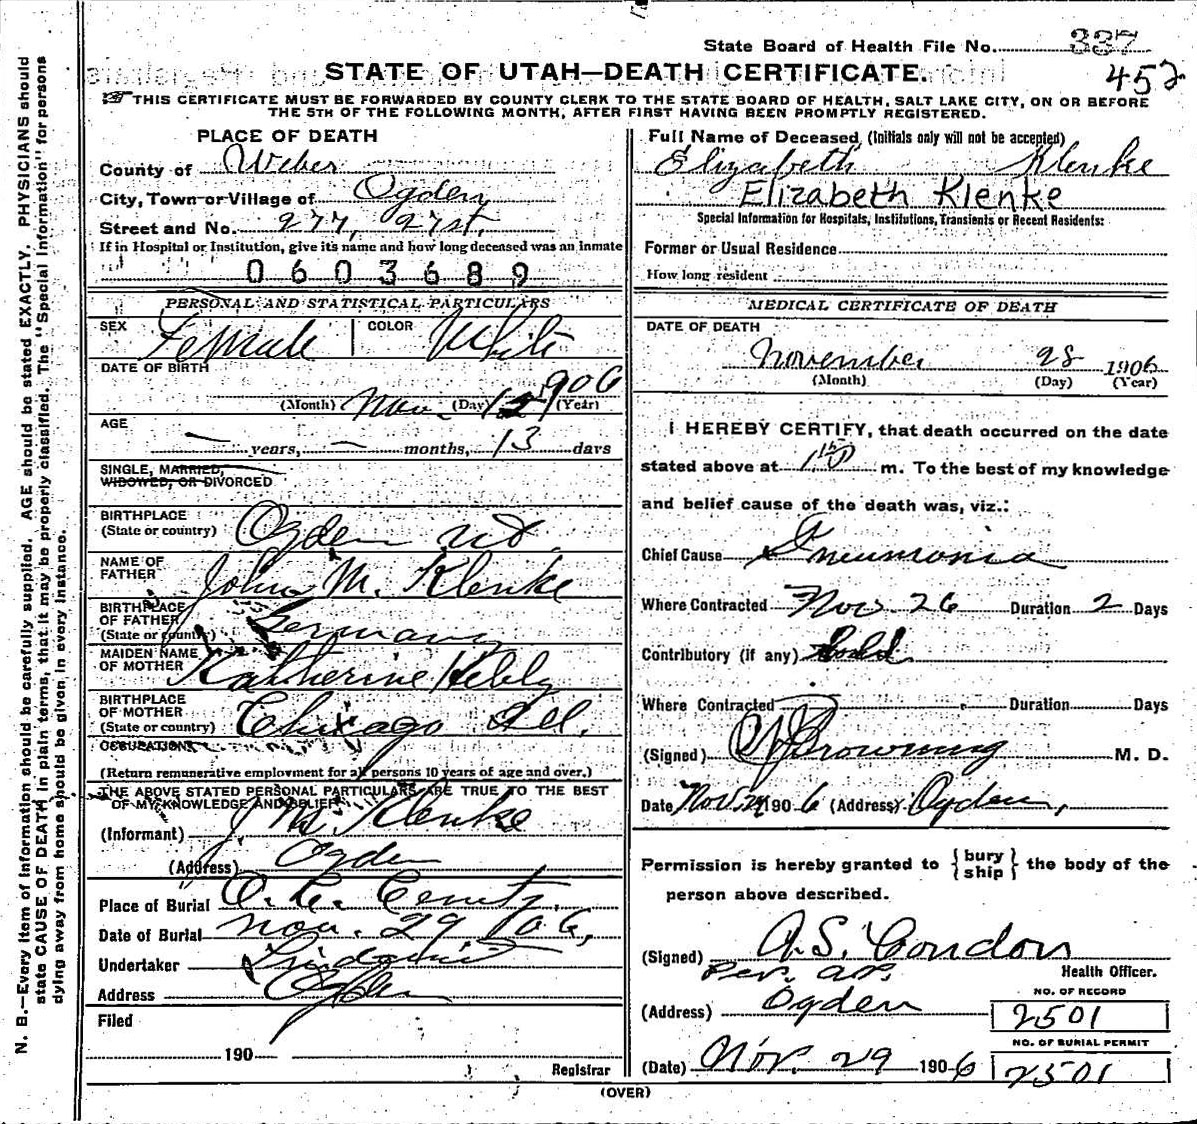 State Board of Health File No. 337
452
STATE OF UTAH—DEATH CERTIFICATE.
THIS CERTIFICATE MUST BE FORWARDED BY COUNTY CLERK TO THE STATE BOARD OF HEALTH, SALT LAKE CITY, ON OR BEFORE
THE 5TH OF THE FOLLOWING MONTH, AFTER FIRST HAVING BEEN PROMPTLY REGISTERED.
PLACE OF DEATH
County of Weber
City, Town or Village of Ogden
Street and No. 277, 27st.
If in Hospital or Institution, give its name and how long deceased was an inmate
0603689
PERSONAL AND STATISTICAL PARTICULARS
SEX Female COLOR White
DATE OF BIRTH
(Month) Nov. (Day) 15 1906 (Year)
AGE
— years, — months, 13 days
SINGLE, MARRIED,
WIDOWED, OR DIVORCED
BIRTHPLACE
(State or country) Ogden Ut.
NAME OF
FATHER John M. Klenke
BIRTHPLACE
OF FATHER
(State or country) Germany
MAIDEN NAME
OF MOTHER Katherine
BIRTHPLACE
OF MOTHER
(State or country) Chicago Ill.
OCCUPATION
(Return remunerative employment for all persons 10 years of age and over.)
THE ABOVE STATED PERSONAL PARTICULARS ARE TRUE TO THE BEST
OF MY KNOWLEDGE AND BELIEF
(Informant) J. M. Klenke
(Address) Ogden
Place of Burial O. C. Cemty.
Date of Burial Nov. 29 '06,
Undertaker
Address Ogden
Filed
190
Registrar
Full Name of Deceased (Initials only will not be accepted)
Elizabeth Klenke
Elizabeth Klenke
Special Information for Hospitals, Institutions, Transients or Recent Residents:
Former or Usual Residence
How long resident
MEDICAL CERTIFICATE OF DEATH
DATE OF DEATH
November 28 1906
(Month) (Day) (Year)
I HEREBY CERTIFY, that death occurred on the date
stated above at m. To the best of my knowledge
and belief cause of the death was, viz.:
Chief Cause Pneumonia
Where Contracted Nov. 26 Duration 2 Days
Contributory (if any) Cold
Where Contracted Duration Days
(Signed) Browning M. D.
Date Nov. 1906 (Address) Ogden,
Permission is hereby granted to {bury
ship} the body of the
person above described.
(Signed) A. S. Condon
Per. Health Officer.
(Address) Ogden
NO. OF RECORD
2501
NO. OF BURIAL PERMIT
2501
(Date) Nov. 29 1906
(OVER)
N. B.—Every item of information should be carefully supplied. AGE should be stated EXACTLY. PHYSICIANS should
state CAUSE OF DEATH in plain terms, that it may be properly classified. The "Special Information" for persons
dying away from home should be given in every instance.